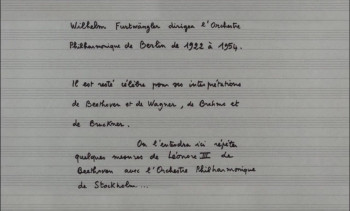 Wilhelm Furtwängler dirigea l'Orchestre
Philharmonique de Berlin de 1922 à 1954.
Il est resté célèbre pour ses interprétations
de Beethoven et de Wagner, de Brahms et
de Bruckner.
On l'entendra ici répéter
quelques mesures de Léonore III de
Beethoven avec l'Orchestre Philharmonique
de Stockholm...